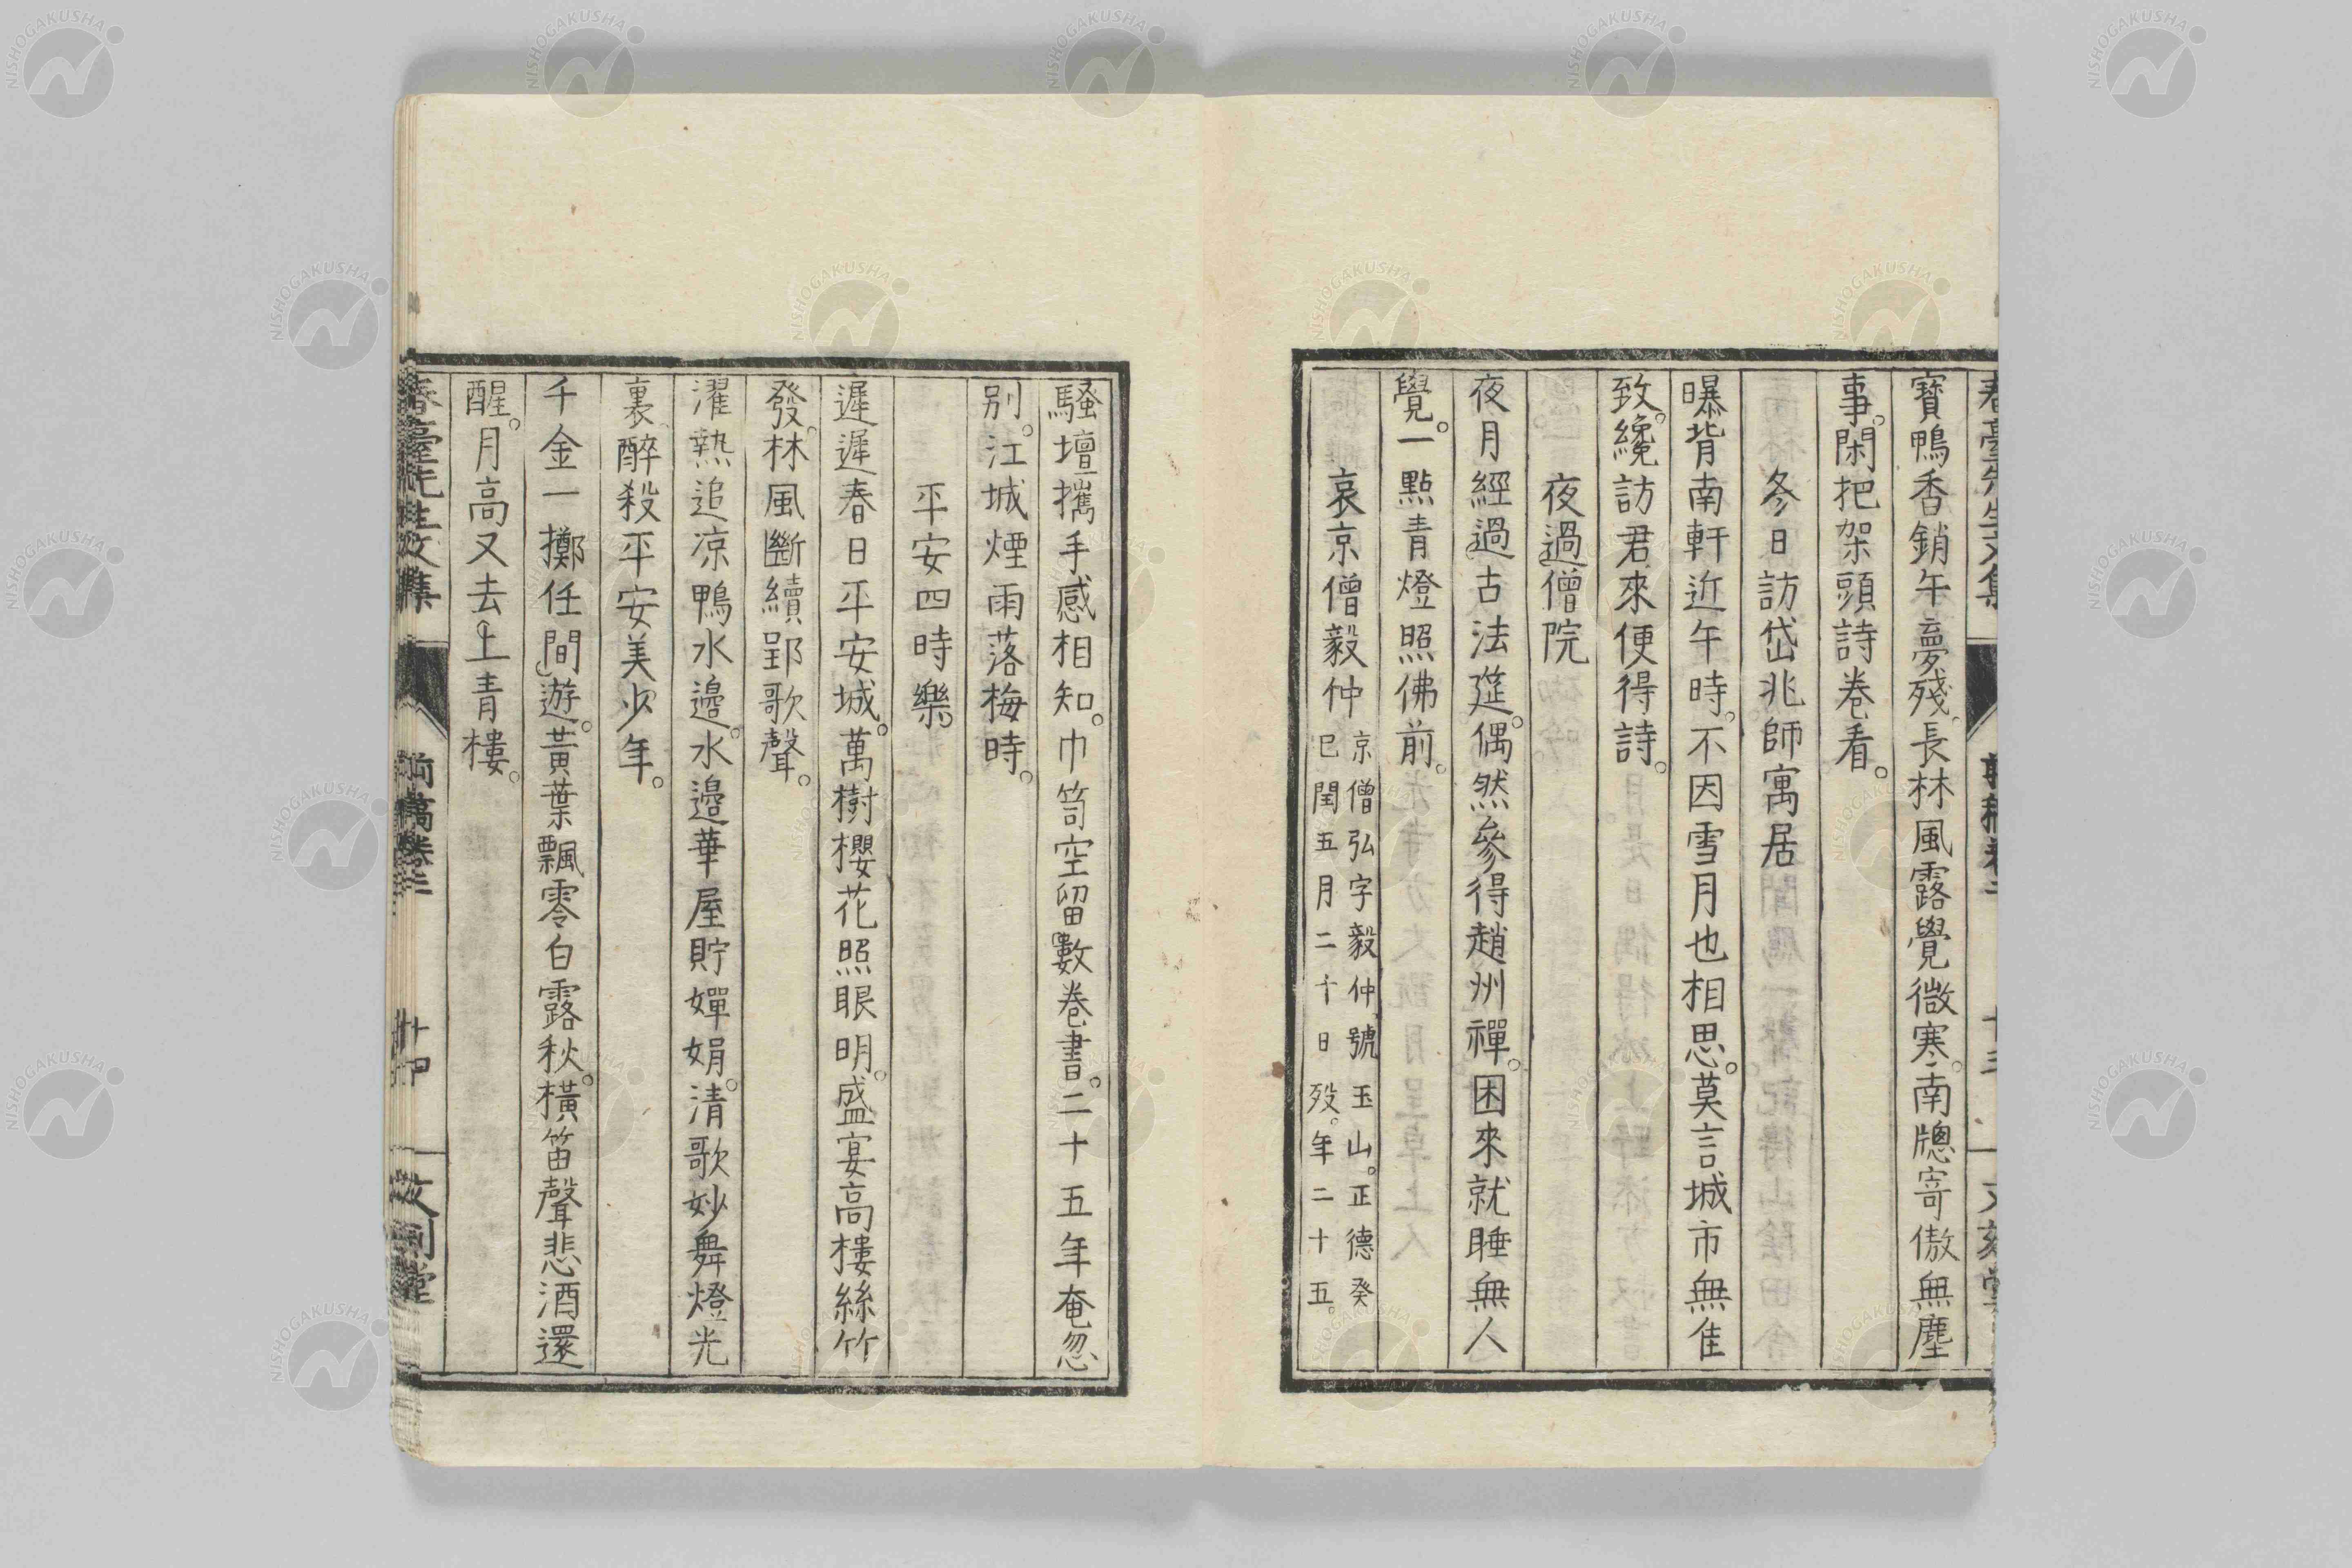 寶鴨香銷午夢殘。長林風露覺微寒。南牕寄傲無塵
事。閑把架頭詩卷看。
冬日訪岱兆師寓居
曝背南軒近午時。不因雪月也相思。莫言城市無佳
致。纔訪君來便得詩。
夜過僧院
夜月經過古法筵。偶然參得趙州禪。困來就睡無人
覺。一點青燈照佛前。
哀京僧毅仲
京僧弘字毅仲、號玉山。正德癸
巳閏五月二十日歿。年二十五。
騷壇攜手感相知。巾笥空留數卷書。二十五年奄忽
別。江城煙雨落梅時。
平安四時樂
遲遲春日平安城。萬樹櫻花照眼明。盛宴高樓絲竹
發。林風斷續郢歌聲。
濯熱追凉鴨水邊。水邊華屋貯嬋娟。清歌妙舞燈光
裏。醉殺平安美少年。
千金一擲任間遊。黃葉飄零白露秋。橫笛聲悲酒還
醒。月高又去上青樓。
春臺先生文集 前稿卷二 十四 文刻堂